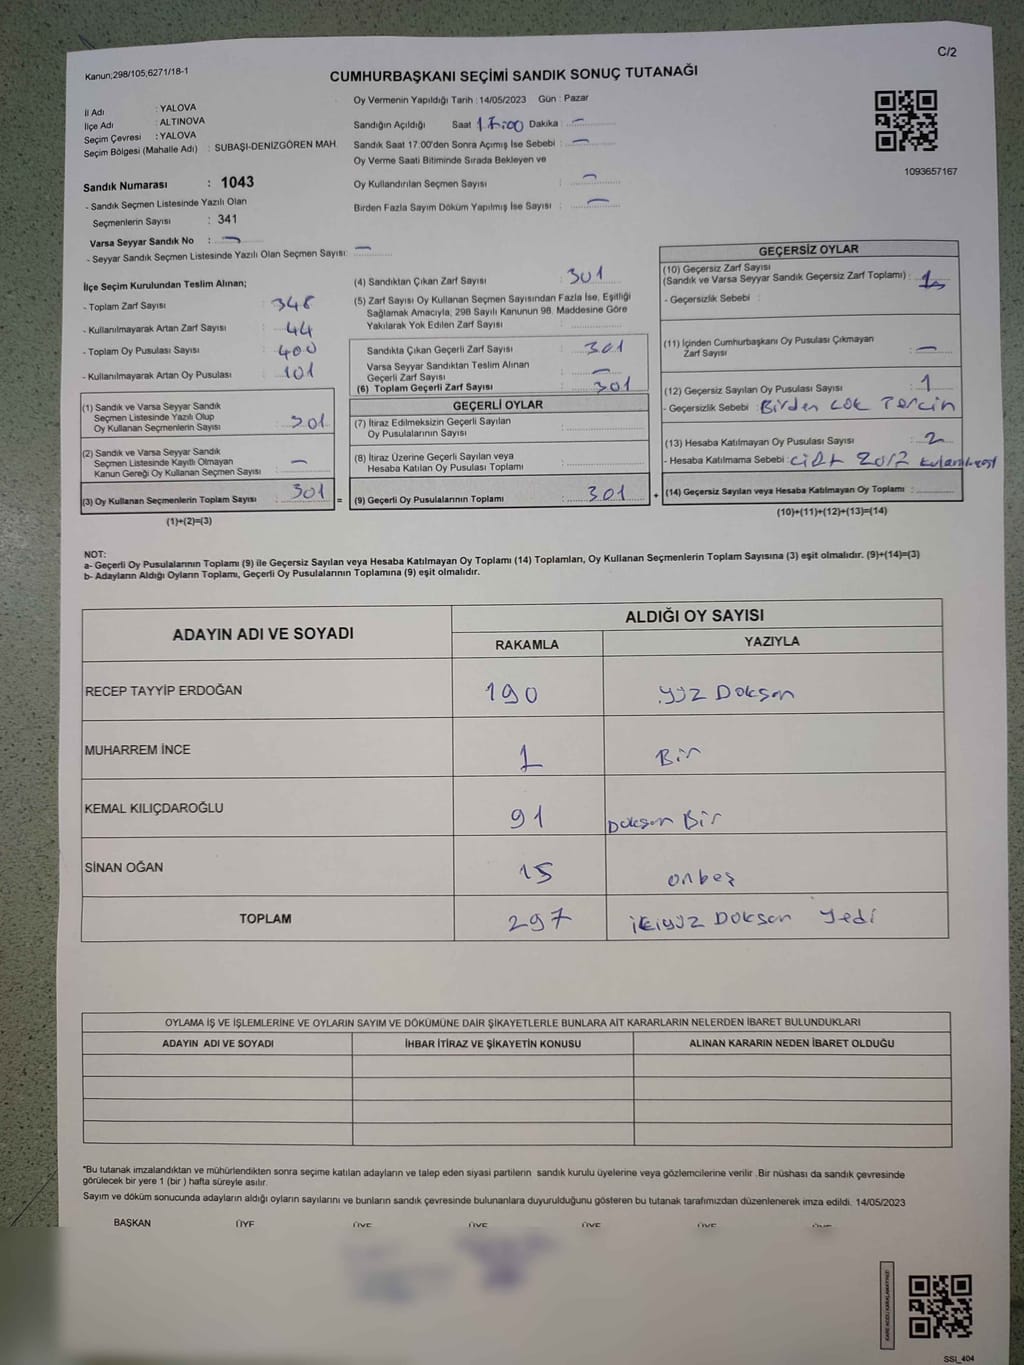 C/2
Kanun;298/105;6271/18-1
CUMHURBAŞKANI SEÇİMİ SANDIK SONUÇ TUTANAĞI
İl Adı : YALOVA
İlçe Adı : ALTINOVA
Seçim Çevresi : YALOVA
Seçim Bölgesi (Mahalle Adı) : SUBAŞI-DENİZGÖREN MAH.
Oy Vermenin Yapıldığı Tarih : 14/05/2023 Gün : Pazar
Sandığın Açıldığı Saat 17:00 Dakika : –
Sandık Saat 17:00'den Sonra Açımış İse Sebebi : –
Oy Verme Saati Bitiminde Sırada Bekleyen ve
Oy Kullandırılan Seçmen Sayısı : –
Birden Fazla Sayım Döküm Yapılmış İse Sayısı : –
1093657167
Sandık Numarası : 1043
- Sandık Seçmen Listesinde Yazılı Olan
Seçmenlerin Sayısı : 341
Varsa Seyyar Sandık No : –
- Seyyar Sandık Seçmen Listesinde Yazılı Olan Seçmen Sayısı: –
İlçe Seçim Kurulundan Teslim Alınan;
- Toplam Zarf Sayısı : 348
- Kullanılmayarak Artan Zarf Sayısı : 44
- Toplam Oy Pusulası Sayısı : 400
- Kullanılmayarak Artan Oy Pusulası : 101
(1) Sandık ve Varsa Seyyar Sandık
Seçmen Listesinde Yazılı Olup
Oy Kullanan Seçmenlerin Sayısı : 301
(2) Sandık ve Varsa Seyyar Sandık
Seçmen Listesinde Kayıtlı Olmayan
Kanun Gereği Oy Kullanan Seçmen Sayısı : –
(3) Oy Kullanan Seçmenlerin Toplam Sayısı : 301 =
(1)+(2)=(3)
(4) Sandıktan Çıkan Zarf Sayısı : 301
(5) Zarf Sayısı Oy Kullanan Seçmen Sayısından Fazla İse, Eşitliği
Sağlamak Amacıyla, 298 Sayılı Kanunun 98. Maddesine Göre
Yakılarak Yok Edilen Zarf Sayısı :
Sandıkta Çıkan Geçerli Zarf Sayısı : 301
Varsa Seyyar Sandıktan Teslim Alınan
Geçerli Zarf Sayısı : –
(6) Toplam Geçerli Zarf Sayısı : 301
GEÇERLİ OYLAR
(7) İtiraz Edilmeksizin Geçerli Sayılan
Oy Pusulalarının Sayısı :
(8) İtiraz Üzerine Geçerli Sayılan veya
Hesaba Katılan Oy Pusulası Toplamı :
(9) Geçerli Oy Pusulalarının Toplamı : 301 +
GEÇERSİZ OYLAR
(10) Geçersiz Zarf Sayısı
(Sandık ve Varsa Seyyar Sandık Geçersiz Zarf Toplamı) : 1
- Geçersizlik Sebebi :
(11) İçinden Cumhurbaşkanı Oy Pusulası Çıkmayan
Zarf Sayısı : –
(12) Geçersiz Sayılan Oy Pusulası Sayısı : 1
- Geçersizlik Sebebi : Birden Çok Tercih
(13) Hesaba Katılmayan Oy Pusulası Sayısı : 2
- Hesaba Katılmama Sebebi :
(14) Geçersiz Sayılan veya Hesaba Katılmayan Oy Toplamı :
(10)+(11)+(12)+(13)=(14)
NOT:
a- Geçerli Oy Pusulalarının Toplamı (9) ile Geçersiz Sayılan veya Hesaba Katılmayan Oy Toplamı (14) Toplamları, Oy Kullanan Seçmenlerin Toplam Sayısına (3) eşit olmalıdır. (9)+(14)=(3)
b- Adayların Aldığı Oyların Toplamı, Geçerli Oy Pusulalarının Toplamına (9) eşit olmalıdır.
ADAYIN ADI VE SOYADI
ALDIĞI OY SAYISI
RAKAMLA YAZIYLA
RECEP TAYYİP ERDOĞAN 190 yüz Doksan
MUHARREM İNCE 1 Bir
KEMAL KILIÇDAROĞLU 91 Doksan Bir
SİNAN OĞAN 15 onbeş
TOPLAM 297 ikiyüz Doksan Yedi
OYLAMA İŞ VE İŞLEMLERİNE VE OYLARIN SAYIM VE DÖKÜMÜNE DAİR ŞİKAYETLERLE BUNLARA AİT KARARLARIN NELERDEN İBARET BULUNDUKLARI
ADAYIN ADI VE SOYADI İHBAR İTİRAZ VE ŞİKAYETİN KONUSU ALINAN KARARIN NEDEN İBARET OLDUĞU
*Bu tutanak imzalandıktan ve mühürlendikten sonra seçime katılan adayların ve talep eden siyasi partilerin sandık kurulu üyelerine veya gözlemcilerine verilir .Bir nüshası da sandık çevresinde
görülecek bir yere 1 (bir ) hafta süreyle asılır.
Sayım ve döküm sonucunda adayların aldığı oyların sayılarını ve bunların sandık çevresinde bulunanlara duyurulduğunu gösteren bu tutanak tarafımızdan düzenlenerek imza edildi. 14/05/2023
BAŞKAN ÜYE ÜYE ÜYE ÜYE ÜYE
KARE KODU KARALAMAYINIZ!
SSİ_404